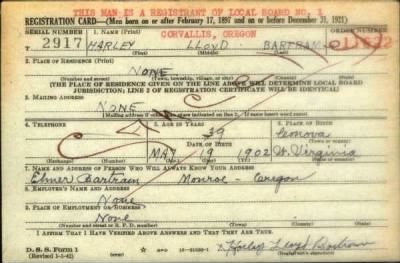 THIS MAN IS A REGISTRANT OF LOCAL BOARD NO. 1
REGISTRATION CARD—(Men born on or after February 17, 1897 and on or before December 31, 1921)
CORVALLIS, OREGON
SERIAL NUMBER 1. NAME (Print) ORDER NUMBER
2917 HARLEY LLOYD BARTRAM
(First) (Middle) (Last)
2. PLACE OF RESIDENCE (Print)
NONE
(Number and street) (Town, township, village, or city) (County) (State)
[THE PLACE OF RESIDENCE GIVEN ON THE LINE ABOVE WILL DETERMINE LOCAL BOARD
JURISDICTION; LINE 2 OF REGISTRATION CERTIFICATE WILL BE IDENTICAL]
3. MAILING ADDRESS
NONE
4. TELEPHONE 5. AGE IN YEARS 6. PLACE OF BIRTH
39 Cenova
DATE OF BIRTH (Town or county)
MAY 19 1902 W. Virginia
(Exchange) (Number) (Mo.) (Day) (Yr.) (State or country)
7. NAME AND ADDRESS OF PERSON WHO WILL ALWAYS KNOW YOUR ADDRESS
Elmer Bartram Monroe - Oregon
8. EMPLOYER'S NAME AND ADDRESS
None
9. PLACE OF EMPLOYMENT OR BUSINESS
None
(Number and street or R. F. D. number) (Town) (County) (State)
I AFFIRM THAT I HAVE VERIFIED ABOVE ANSWERS AND THAT THEY ARE TRUE.
D. S. S. Form 1
(Revised 1-1-42) Harley Lloyd Bartram